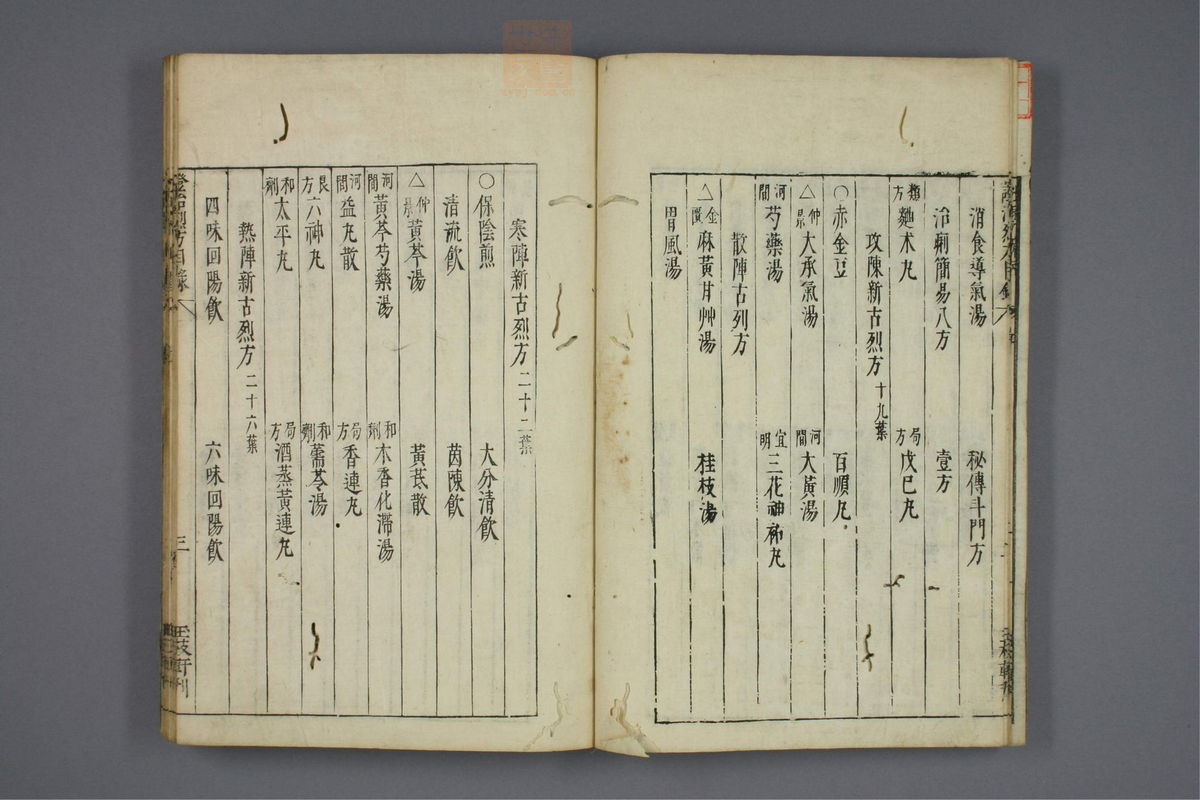 消食導氣湯 秘傳斗門方
冷痢簡易八方 壹方
類方 麯术丸 局方 戊巳丸
攻陳新古烈方 十九葉
○赤金豆 百順丸
△仲景 大承氣湯 河間 大黃湯
河間 芍藥湯 宜明 三花神祐丸
散陣古列方
△金匱 麻黃甘艸湯 桂枝湯
胃風湯
寒陣新古烈方 二十二葉
○保陰煎 大分清飲
清流飲 茵陳飲
△仲景 黃芩湯 黃芪散
河間 黃芩芍藥湯 和劑 木香化滯湯
河間 益元散 局方 香連丸
良方 六神丸 和劑 薷苓湯
和劑 太平丸 局方 酒蒸黃連丸
熱陣新古烈方 二十六葉
四味回陽飲 六味回陽飲
三